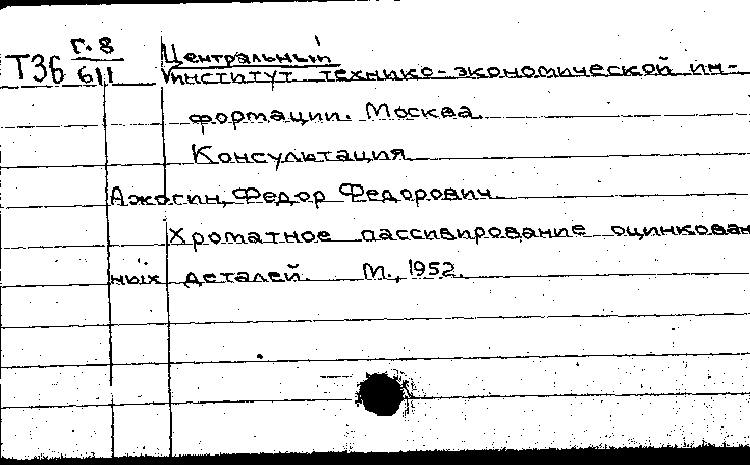 Т36 г.8 Центральный
611 институт технико-экономической ин-
формации. Москва.
Консультация
Ажогин, Федор Федорович
Хроматное пассивирование оцинкован
ных деталей. М., 1952.